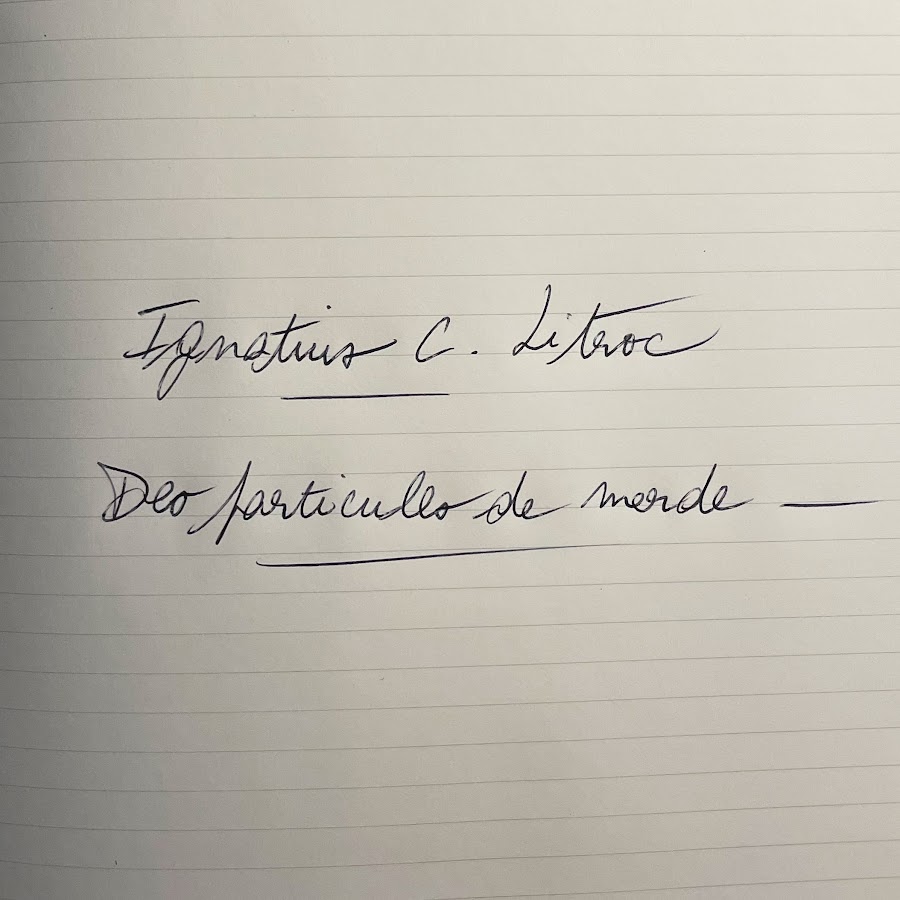 Ignatius C. Litroc
Des particules de merde —